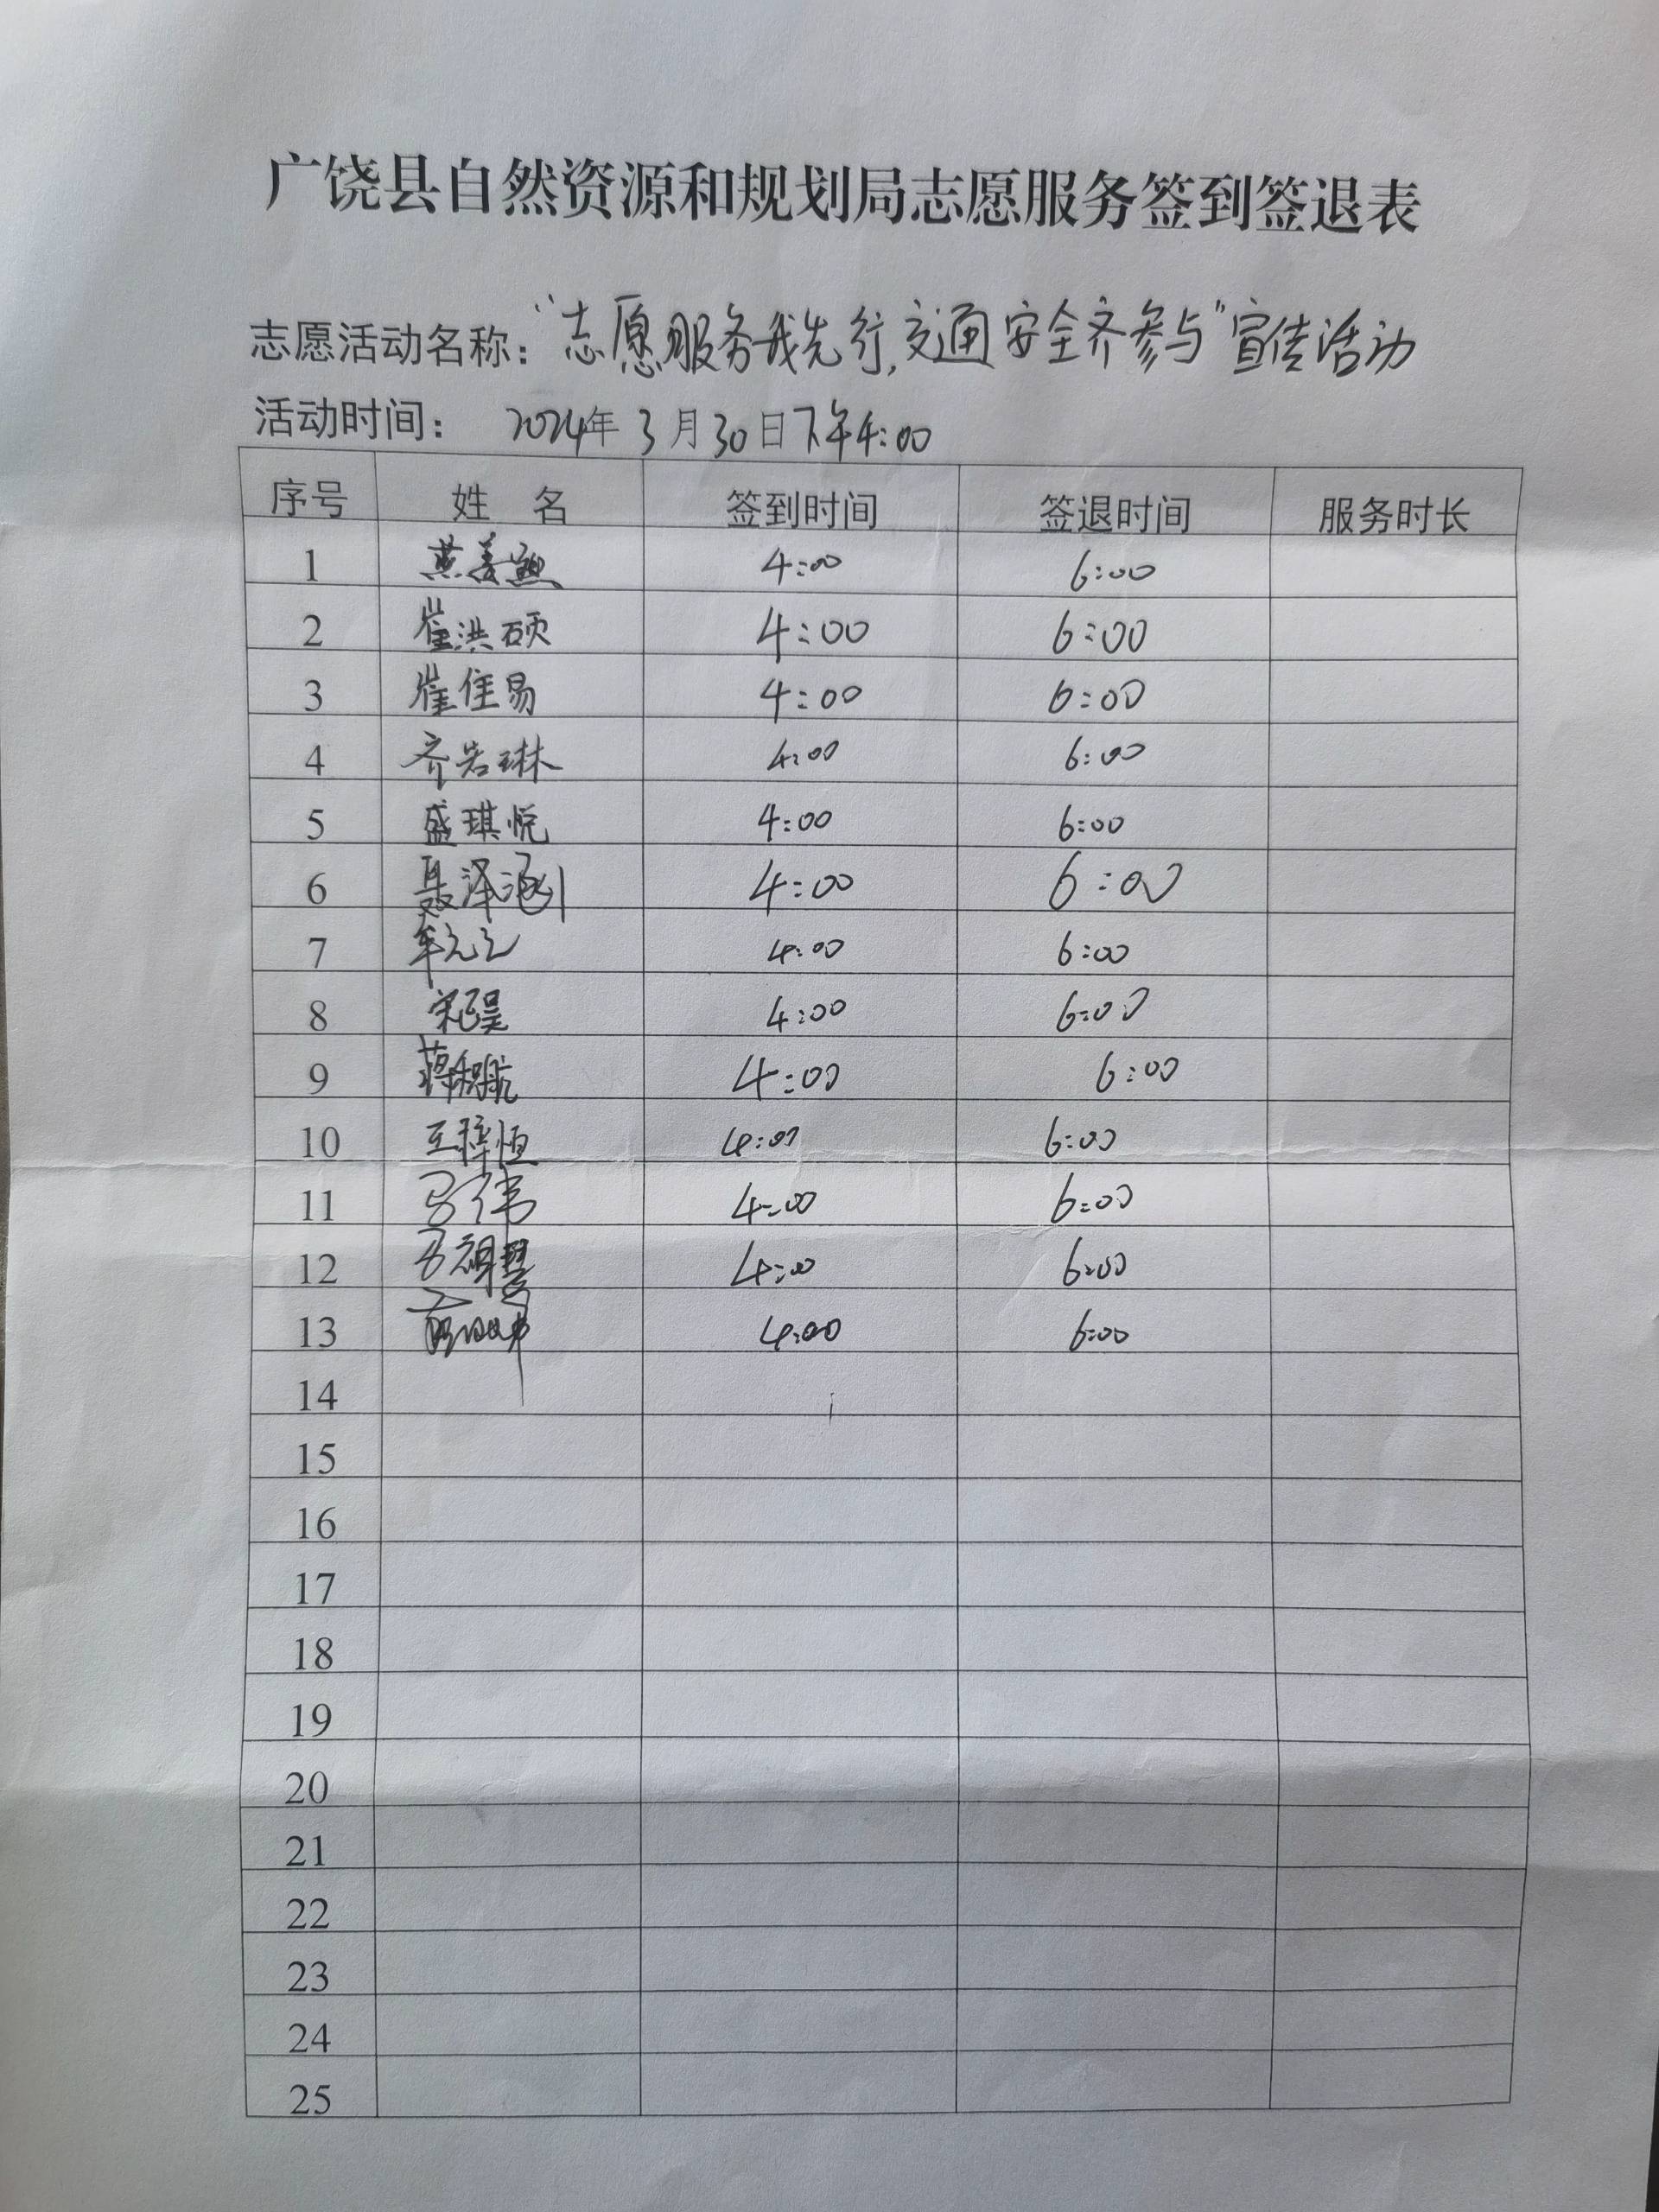 广饶县自然资源和规划局志愿服务签到签退表
志愿活动名称：“志愿服务我先行,交通安全齐参与”宣传活动
活动时间： 2024年 3月30日下午4:00
序号 姓 名 签到时间 签退时间 服务时长
1 4:00 6:00
2 崔洪硕 4:00 6:00
3 崔佳易 4:00 6:00
4 齐岩琳 4:00 6:00
5 盛琪悦 4:00 6:00
6 聂泽涵 4:00 6:00
7 4:00 6:00
8 4:00 6:00
9 4:00 6:00
10 王梓恒 4:00 6:00
11 马伟 4:00 6:00
12 4:00 6:00
13 4:00 6:00
14
15
16
17
18
19
20
21
22
23
24
25